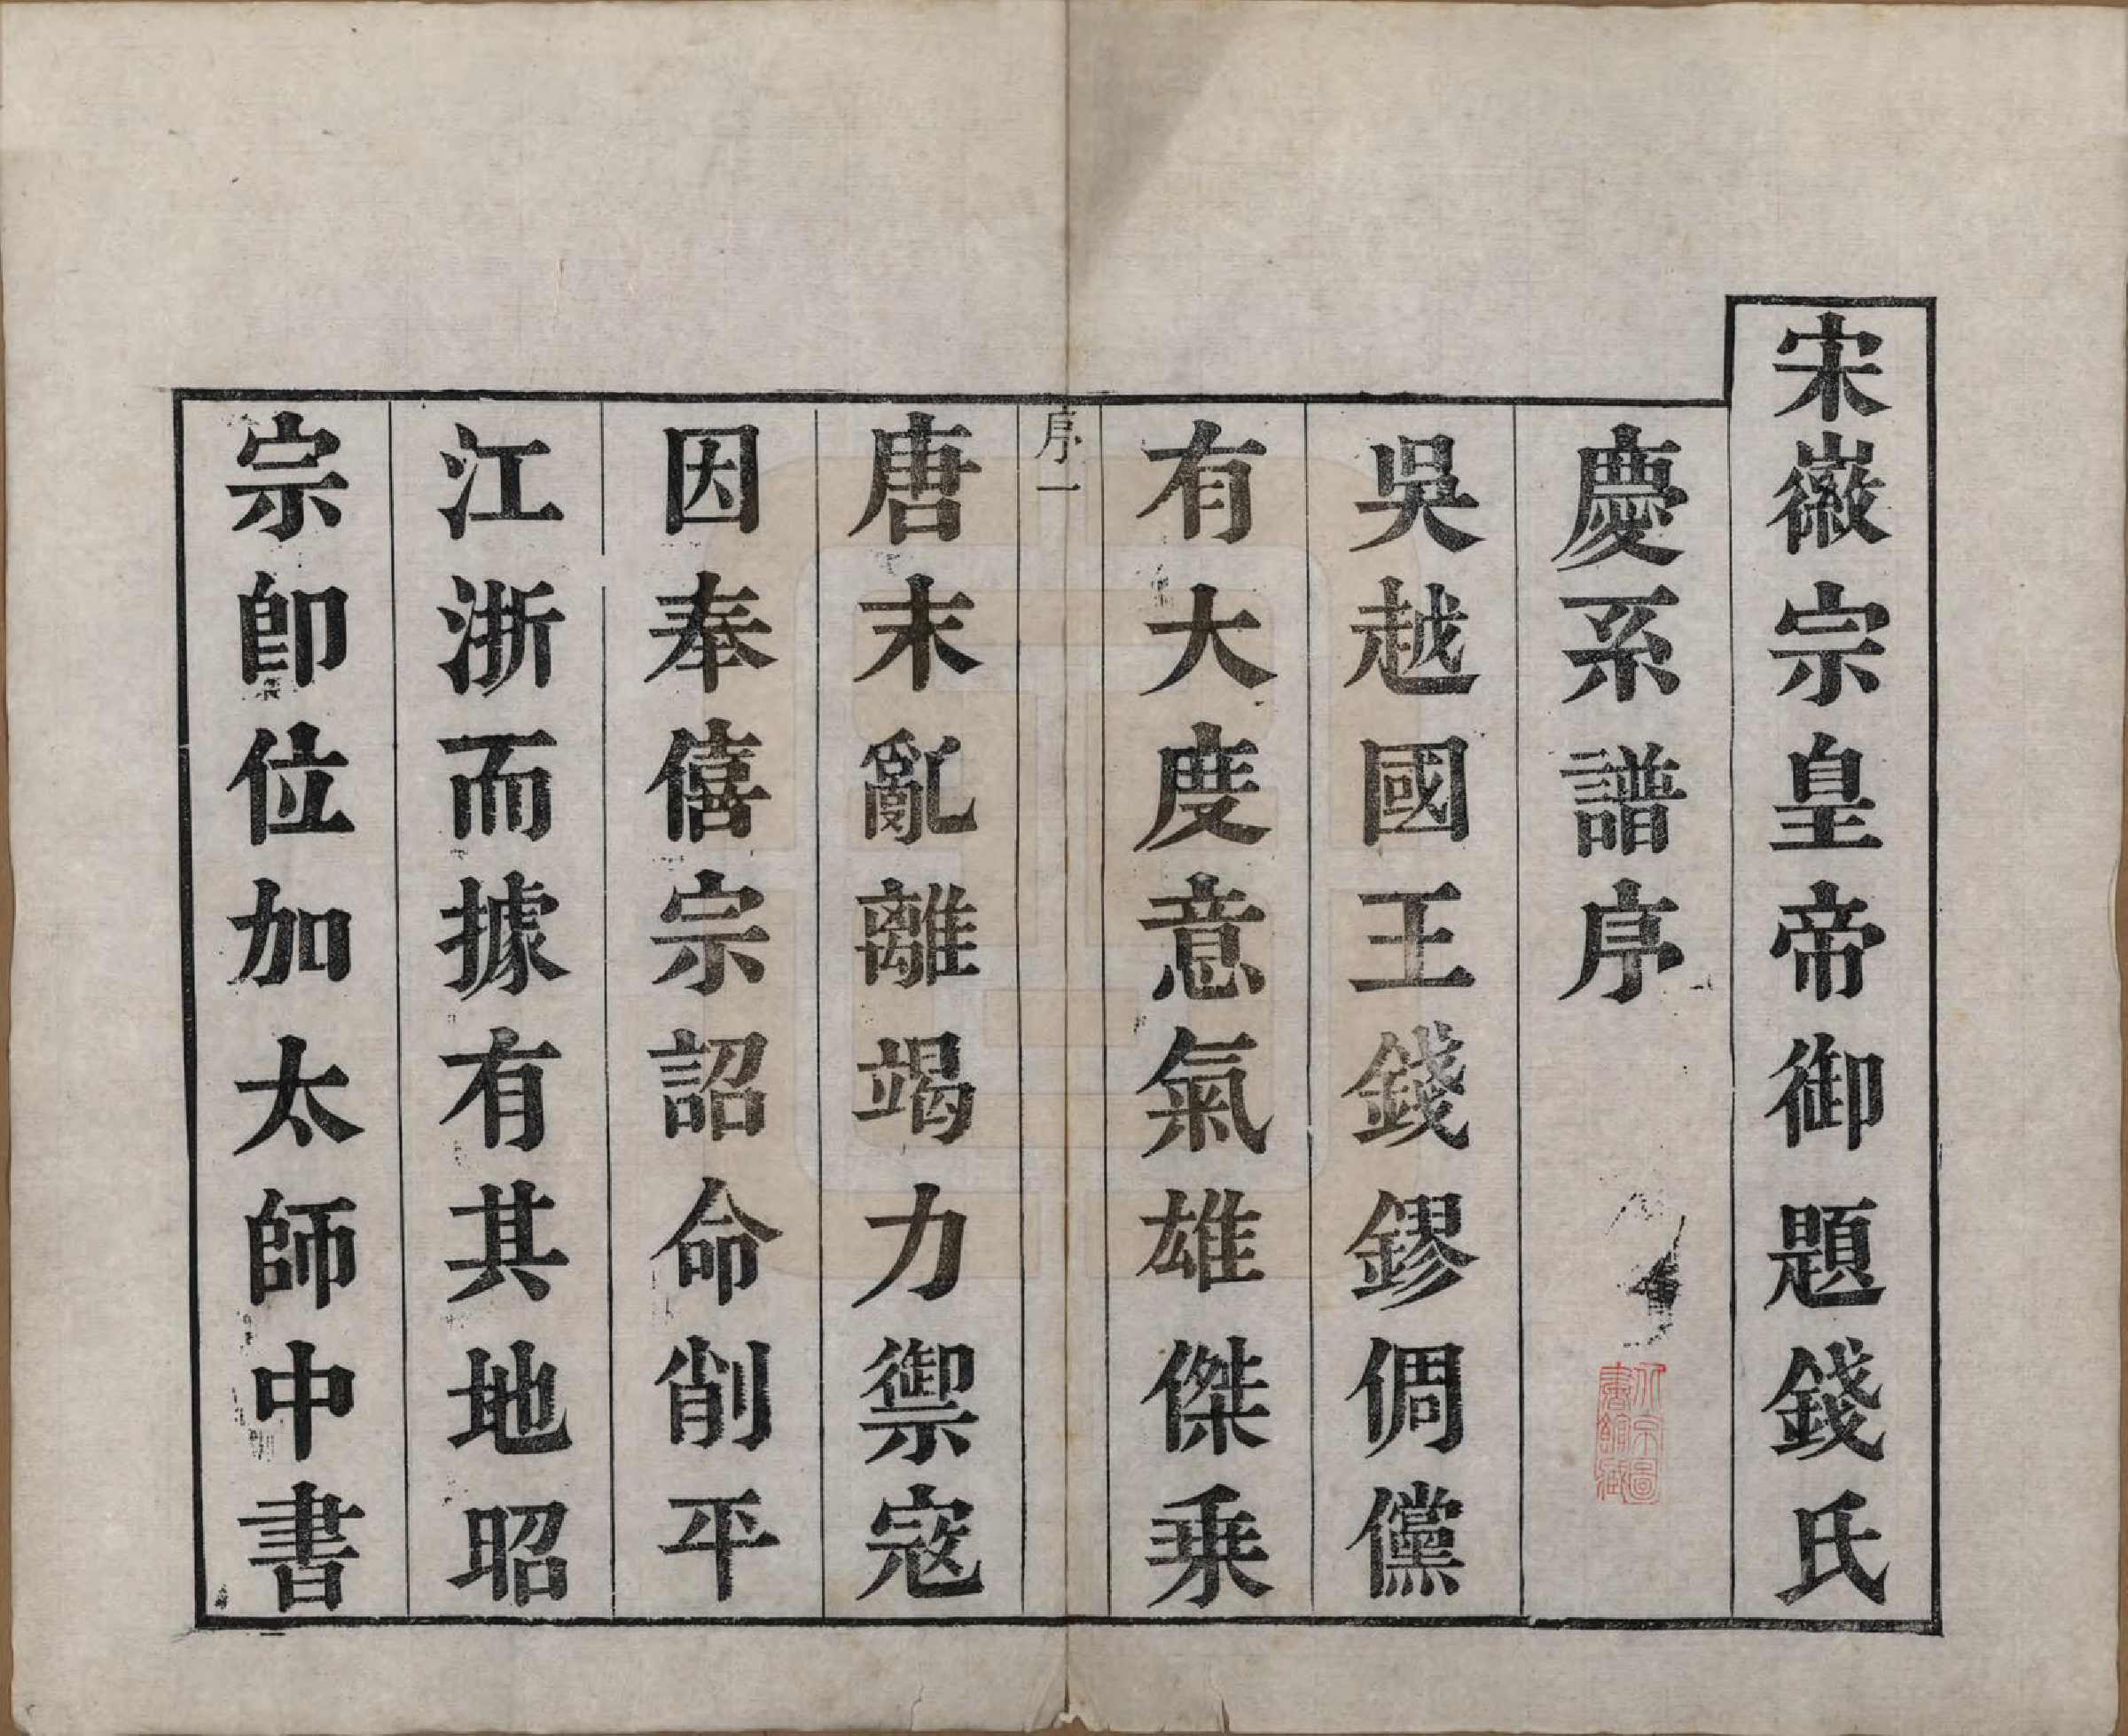 宋徽宗皇帝御題錢氏
慶系譜序
吳越國王錢鏐倜儻
有大度意氣雄傑乗
序一
唐末亂離竭力禦寇
因奉僖宗詔命削平
江浙而據有其地昭
宗卽位加太師中書